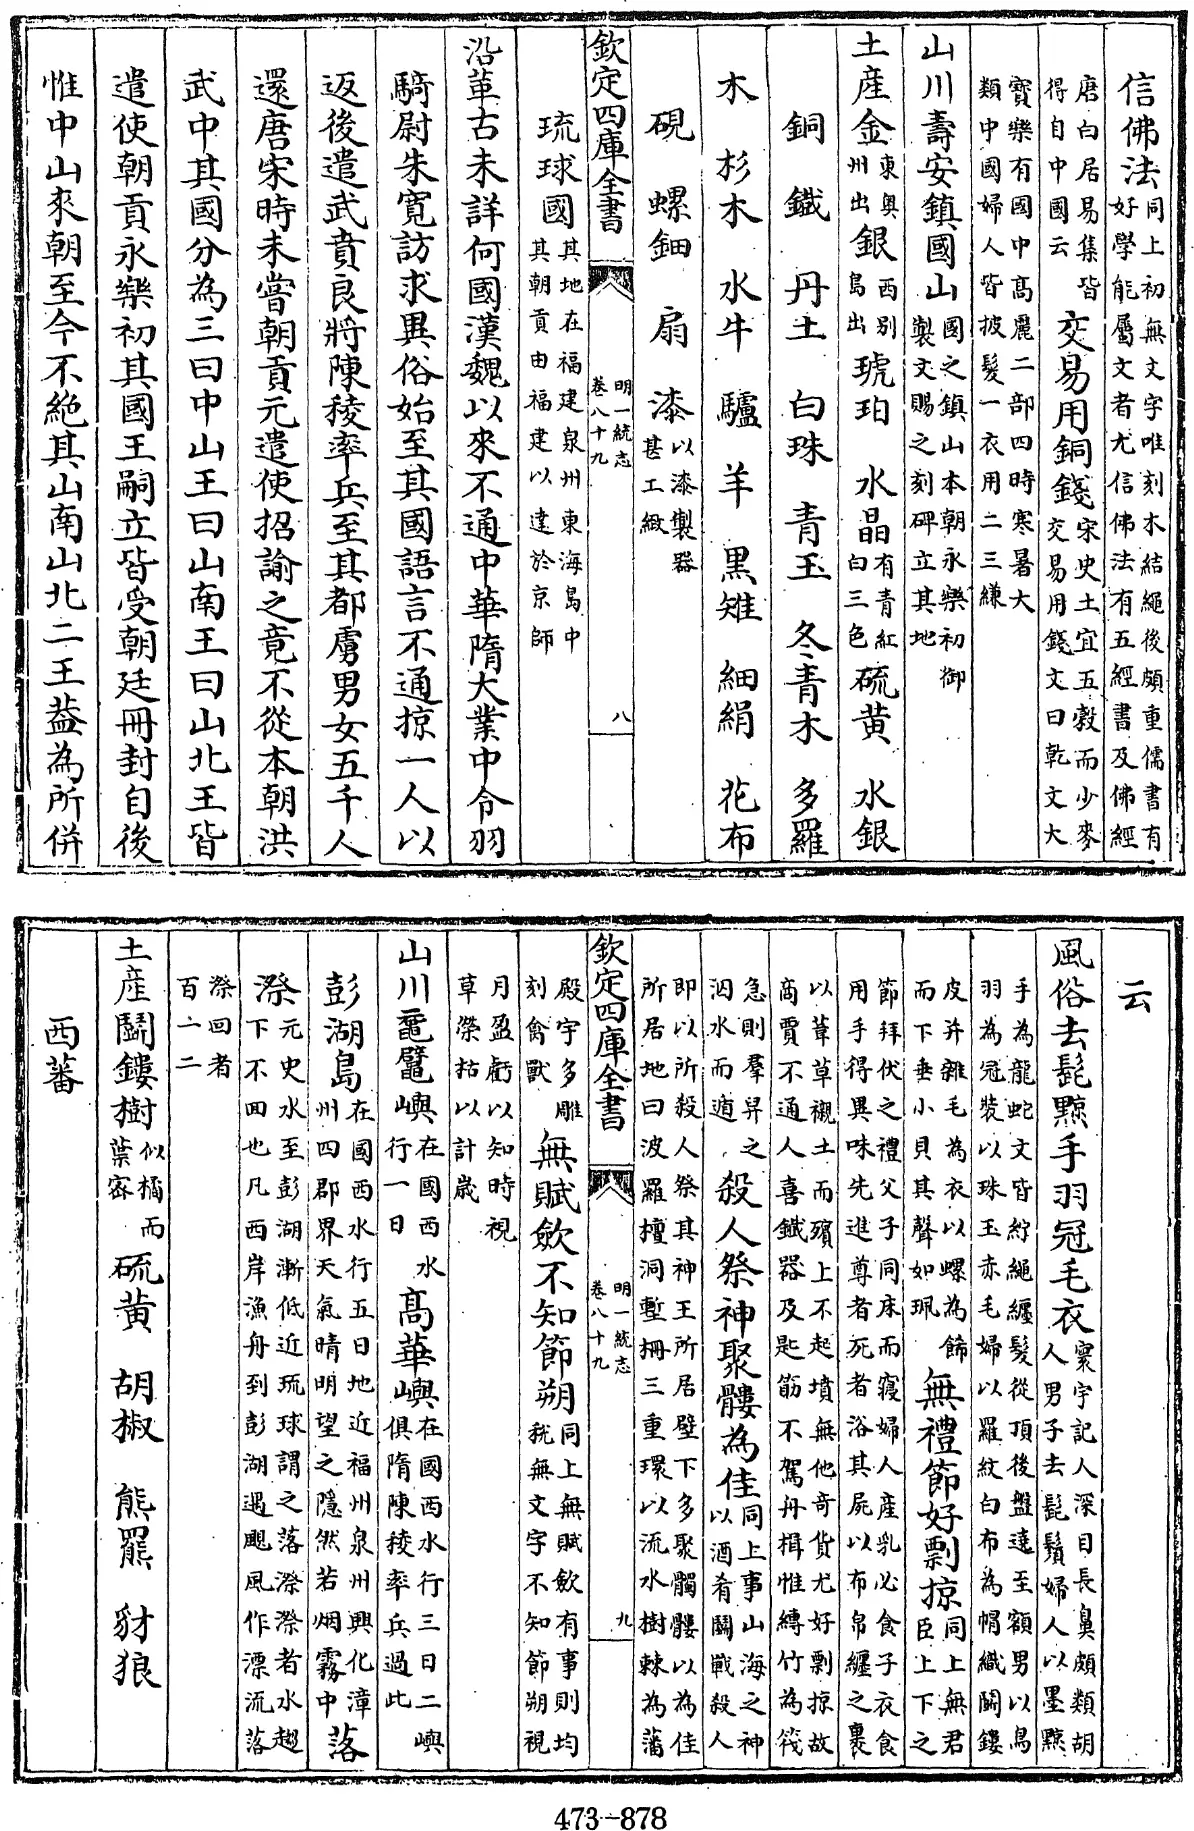 信佛法同上初無文字唯刻木結繩後頗重儒書有好學能屬文者尤信佛法有五經書及佛經
唐白居易集皆得自中國云交易用銅錢宋史土宜五穀而少麥交易用錢文曰乾文大
寶樂有國中髙麗二部四時寒暑大類中國婦人皆披髪一衣用二三縑
山川壽安鎮國山國之鎮山本朝永樂初御製文賜之刻碑立其地
土産金東奥州出銀西别島出琥珀 水晶有青紅白三色硫黄 水銀
銅 鐵 丹土 白珠 青玉 冬青木 多羅
木 杉木 水牛 驢 羊 黒雉 細絹 花布
硯 螺鈿 扇 漆以漆製器甚工緻
欽定四庫全書 明一統志 卷八十九 八
琉球國其地在福建泉州東海島中其朝貢由福建以達於京師
沿革古未詳何國漢魏以來不通中華隋大業中令羽
騎尉朱寛訪求異俗始至其國語言不通掠一人以
返後遣武賁良將陳稜率兵至其都虜男女五千人
還唐宋時未嘗朝貢元遣使招諭之竟不從本朝洪
武中其國分為三曰中山王曰山南王曰山北王皆
遣使朝貢永樂初其國王嗣立皆受朝廷冊封自後
惟中山來朝至今不絶其山南山北二王葢為所併
云
風俗去髭黥手羽冠毛衣寰宇記人深目長鼻頗類胡人男子去髭鬚婦人以墨黥
手為龍蛇文皆紵繩纏髪從頂後盤遶至額男以鳥羽為冠裝以珠玉赤毛婦以羅紋白布為帽織鬬鏤
皮并雜毛為衣以螺為飾而下垂小貝其聲如珮無禮節好剽掠同上無君臣上下之
節拜伏之禮父子同床而寢婦人産乳必食子衣食用手得異味先進尊者死者浴其屍以布帛纏之裹
以葦草襯土而殯上不起墳無他奇貨尤好剽掠故商賈不通人喜鐵器及匙筯不駕舟楫惟縛竹為筏
急則羣舁之泅水而遁殺人祭神聚髏為佳同上事山海之神以酒肴鬬戰殺人
即以所殺人祭其神王所居壁下多聚髑髏以為佳所居地曰波羅檀洞塹柵三重環以流水樹棘為藩
欽定四庫全書 明一統志 卷八十九 九
殿宇多雕刻禽獸無賦斂不知節朔同上無賦斂有事則均稅無文字不知節朔視
月盈虧以知時視草榮枯以計歲
山川黿鼊嶼在國西水行一日髙華嶼在國西水行三日二嶼俱隋陳稜率兵過此
彭湖島在國西水行五日地近福州泉州興化漳州四郡界天氣晴明望之隠然若烟霧中落
漈元史水至彭湖漸低近琉球謂之落漈漈者水趨下不回也凡西岸漁舟到彭湖遇颶風作漂流落
漈回者百一二
土産鬬鏤樹似橘而葉密硫黄 胡椒 熊羆 豺狼
西蕃
473-878